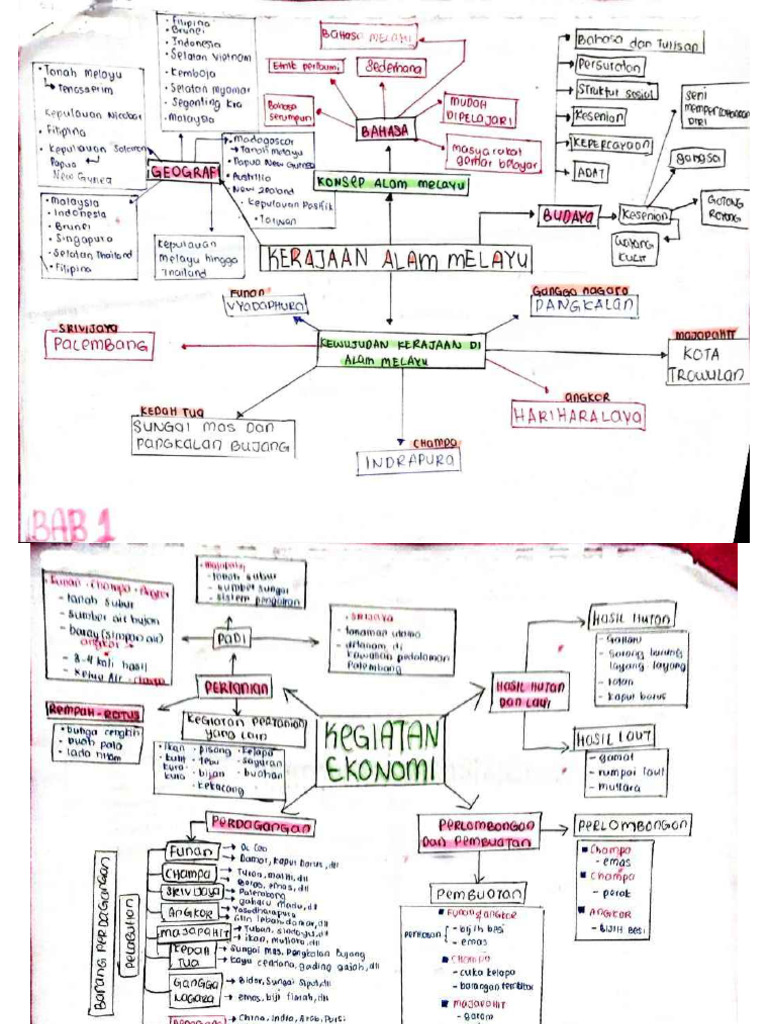 • Filipina
• Brunei
• Indonesia
• Selatan Vietnam
• Kemboja
• Selatan Myanmar
• Segenting Kra
• Malaysia
• Tanah Melayu
Tenasserim
Kepulauan Nicobar
• Filipina
• Kepulauan Solomon
Papua
New Guinea
• Malaysia
• Indonesia
• Brunei
• Singapura
• Selatan Thailand
• Filipina
GEOGRAFI
• Madagascar
• Tanah Melayu
• Papua New Guinea
• Australia
New Zealand
• Kepulauan Pasifik
• Taiwan
Kepulauan
Melayu hingga
Thailand
BAHASA MELAYU
Etnik peribumi
Sederhana
Bahasa
serumpun
MUDAH
DIPELAJARI
BAHASA
masyarakat
gemar belayar
KONSEP ALAM MELAYU
Bahasa dan Tulisan
Persuratan
Struktur sosial
Kesenian
KEPERCAYAAN
ADAT
seni
mempertahankan
DIRI
gangsa
BUDAYA
Kesenian
GOTONG
ROYONG
WAYANG
KULIT
KERAJAAN ALAM MELAYU
FUNAN
VYADAPHURA
GANGGA NAGARA
PANGKALAN
SRIVIJAYA
PALEMBANG
KEWUJUDAN KERAJAAN DI
ALAM MELAYU
MAJAPAHIT
KOTA
TROWULAN
KEDAH TUA
SUNGAI MAS DAN
PANGKALAN BUJANG
ANGKOR
HARIHARALAYA
CHAMPA
INDRAPURA
BAB 1
• Funan • Champa • Angkor
- tanah subur
- sumber air hujan
- baray (simpan air)
angkor
- 3-4 kali hasil
- Kincir Air - champa
• majapahit
- tanah subur
- sumber sungai
- sistem pengairan
PADI
• SRIVIJAYA
- tanaman utama
- ditanam di
kawasan pedalaman
Palembang
PERTANIAN
REMPAH-RATUS
- bunga cengkih
- buah pala
- lada hitam
Kegiatan Pertanian
yang lain
• ikan • pisang • kelapa
• kura • tebu • sayuran
kura • bijan • buahan
• kekacang
KEGIATAN
EKONOMI
HASIL HUTAN
DAN LAUT
HASIL HUTAN
- Gaharu
- Sarang burung
layang layang
- rotan
- kapur barus
HASIL LAUT
- gamat
- rumpai laut
- mutiara
PERDAGANGAN
BARANG PERDAGANGAN
PELABUHAN
FUNAN
Oc Eo
Damar, kapur barus, dll
CHAMPA
SRIVIJAYA
Palembang
gaharu madu, dll
ANGKOR
Yasodharapura
lilin lebah, damar, dll
MAJAPAHIT
Tuban, sidayu, dll
ikan, mutiara, dll
KEDAH
TUA
Sungai Mas, Pengkalan Bujang
Kayu cendana, gading gajah, dll
GANGGA
NAGARA
Bidor, Sungai Siput, dll
emas, biji timah, dll
China, India, Arab, Parsi
PERLOMBONGAN
DAN PEMBUATAN
PERLOMBONGAN
■ Champa
- emas
■ Champa
- perak
■ ANGKOR
- BIJIH BESI
PEMBUATAN
■ FUNAN & ANGKOR
- bijih besi
- emas
■ CHAMPA
- cuka kelapa
- barangan tembikar
■ MAJAPAHIT
- garam